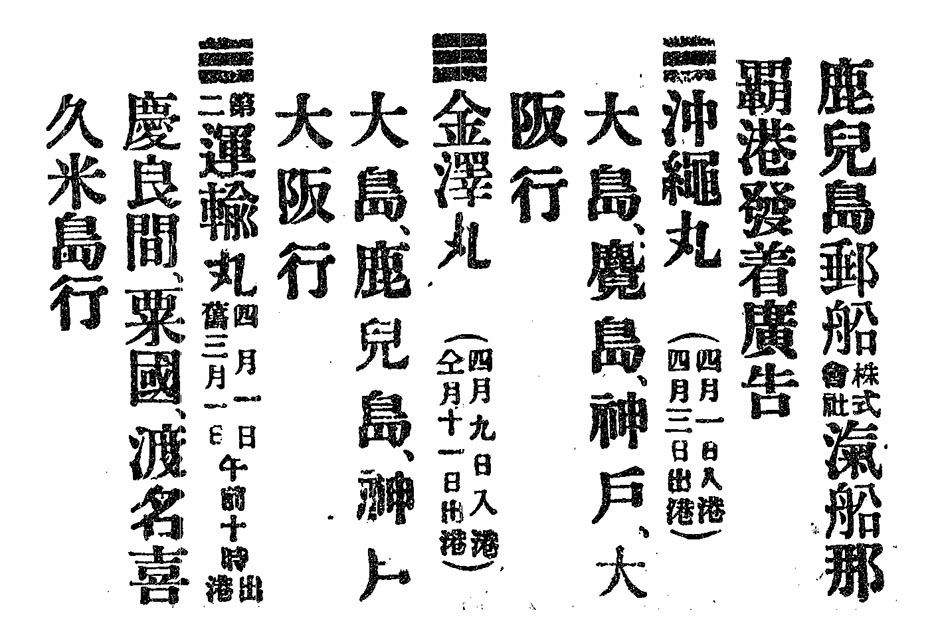 鹿兒島郵船株式會社滊船那
覇港發着廣告
沖繩丸(四月一日入港四月三日出港)
大島、麑島、神戶、大
阪行
金澤丸(四月九日入港仝月十一日出港)
大島、鹿兒島、神戶
大阪行
第二運輸丸四月一日舊三月一日午前十時出港
慶良間、粟國、渡名喜
久米島行